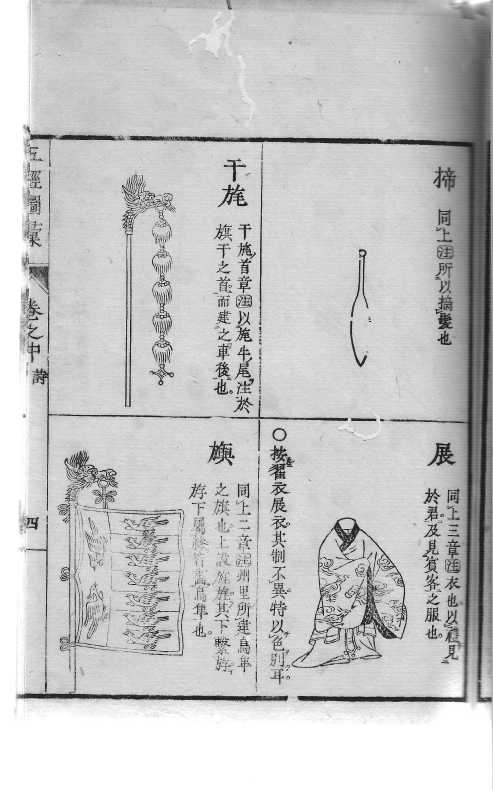 揥
同上注所以摘髮也
展
同上三章注衣也以禮見
於君及見賓客之服也
○按翟衣展衣其制不異特以色別耳
干旄
干旄首章注以旄牛尾注於
旗干之首而建之車後也
旟
同上二章注州里所建鳥隼
之旟也上設旌旄其下繫斿
斿下屬縿皆畫鳥隼也
五經圖彙
卷之中
詩
四